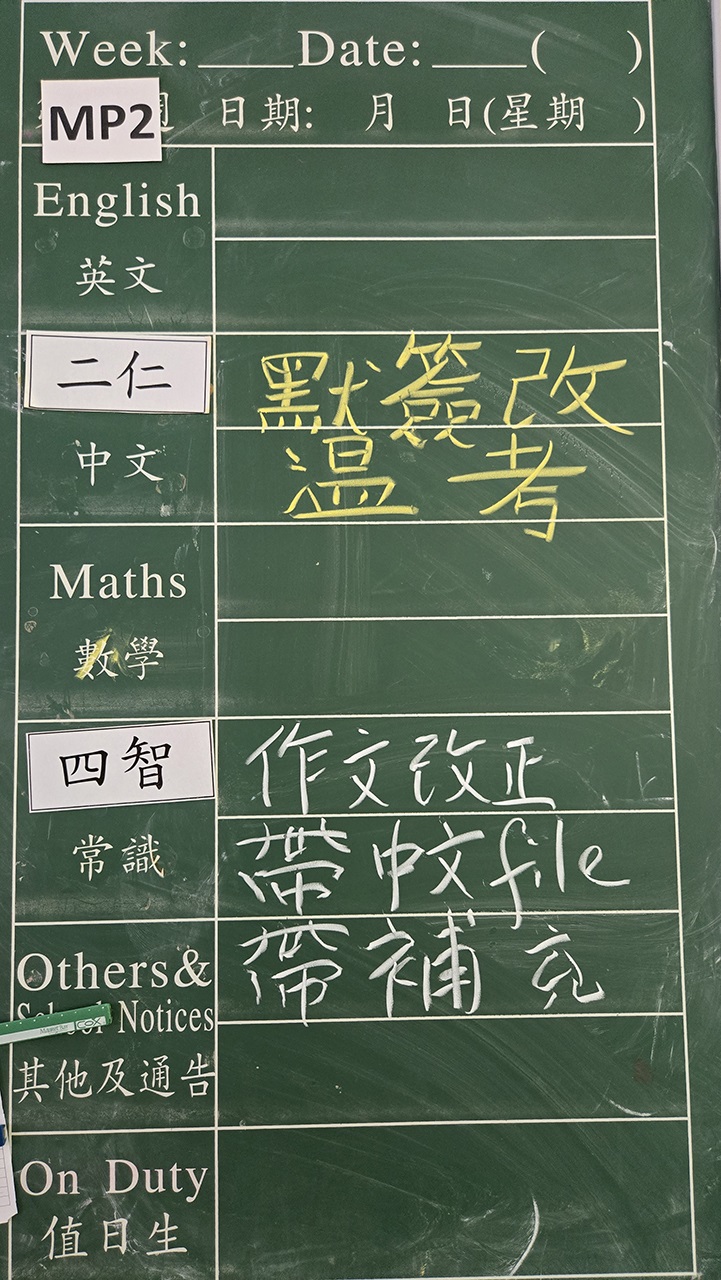 Week: ____Date: ____( )
MP2 週 日期: 月 日(星期 )
English
英文
二仁
默簽改
中文
溫考
Maths
數學
四智
作文改正
常識
帶中文file
Others&
帶補充
School Notices
COX
其他及通告
On Duty
值日生